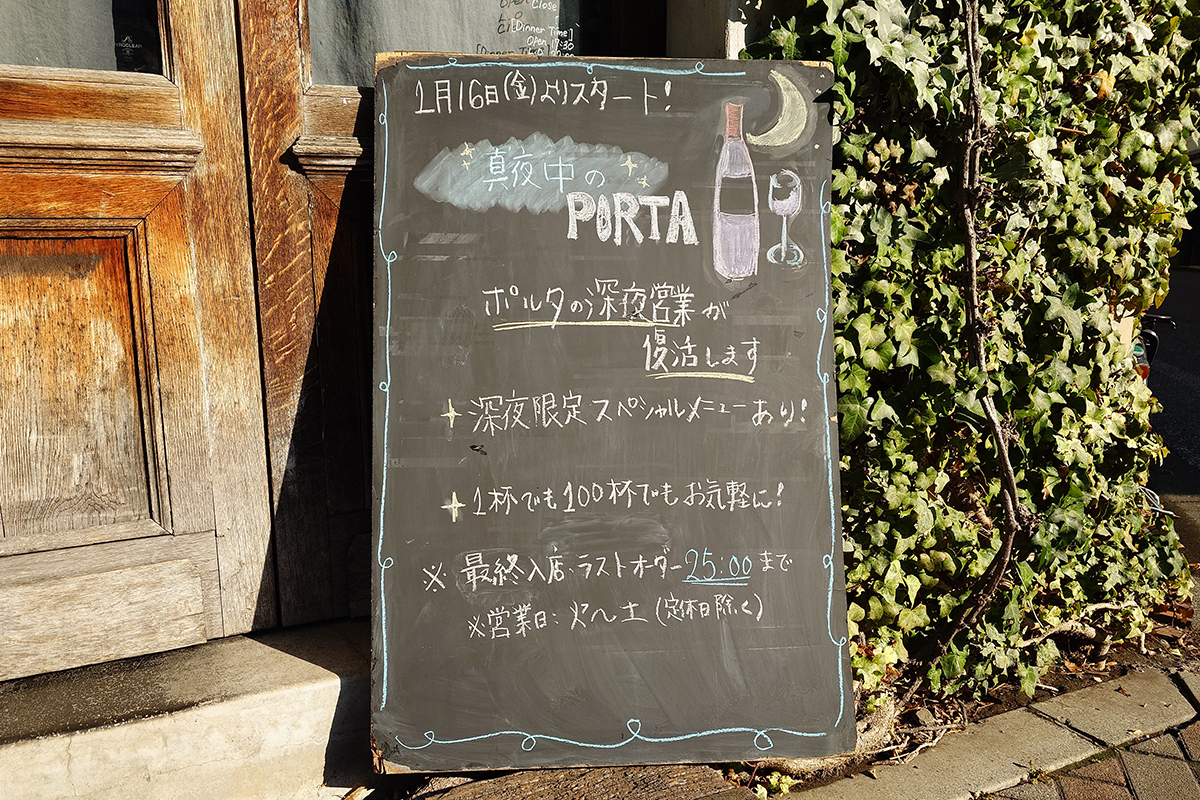 Close
[Dinner Time]
Open 17:30
[Dinner Time]
1月16日(金)よりスタート!
真夜中の
PORTA
ポルタの深夜営業が
復活します
深夜限定スペシャルメニューあり!
1杯でも100杯でもお気軽に!
※最終入店・ラストオーダー25:00まで
※営業日:火〜土(定休日除く)